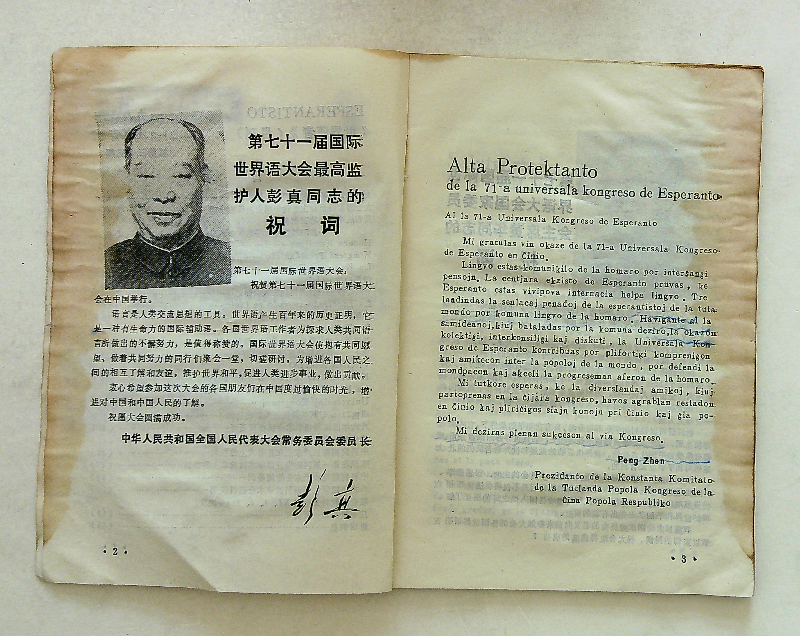 第七十一届国际
世界语大会最高监
护人彭真同志的
祝 词
第七十一届国际世界语大会：
祝贺第七十一届国际世界语大
会在中国举行。
语言是人类交流思想的工具。世界语产生百年来的历史证明，它
是一种有生命力的国际辅助语。各国世界语工作者为探求人类共同语
言所做出的不懈努力，是值得称赞的。国际世界语大会使抱有共同愿
望、做着共同努力的同行们聚会一堂，切磋研讨，为增进各国人民之
间的相互了解和友谊，维护世界和平，促进人类进步事业，做出贡献。
衷心希望参加这次大会的各国朋友们在中国度过愉快的时光，增
进对中国和中国人民的了解。
祝愿大会圆满成功。
中华人民共和国全国人民代表大会常务委员会委员长
彭真
·2·
Alta Protektanto
de la 71-a universala kongreso de Esperanto
Al la 71-a Universala Kongreso de Esperanto
Mi gratulas vin okaze de la 71-a Universala Kongreso
de Esperanto en Ĉinio.
Lingvo estas komunikilo de la homaro por interŝanĝi
pensojn. La centjara ekzisto de Esperanto pruvas, ke
Esperanto estas vivipova internacia helpa lingvo. Tre
laŭdindas la senlacaj penadoj de la esperantistoj de la tuta
mondo por komuna lingvo de la homaro. Havigante al la
samideanoj, kiuj bataladas por la komuna deziro, la okazon
kolektiĝi, interkonsiliĝi kaj diskuti, la Universala Kon-
greso de Esperanto kontribuas por plifortigi komprenigon
kaj amikecon inter la popoloj de la mondo, por defendi la
mondpacon kaj akceli la progreseman aferon de la homaro.
Mi tutkore esperas, ke la diverslandaj amikoj, kiuj
partoprenas en la ĉijara kongreso, havos agrablan restadon
en Ĉinio kaj pliriĉigos siajn konojn pri Ĉinio kaj ĝia po-
polo.
Mi deziras plenan sukceson al via Kongreso.
Peng Zhen
Prezidanto de la Konstanta Komitato
de la Tutlanda Popola Kongreso de la
Ĉina Popola Respubliko
·3·